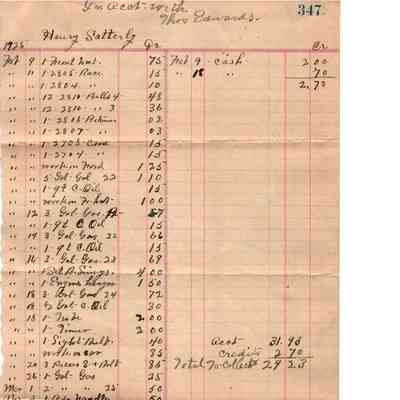 In Acct. with
Thos Edwards.
347
Henry Satterly
1925 Dr. Cr.
Feb 9 1 Front 75 Feb 9 - Cash 2 00
" " 1- 2805 Race 15 " 18 " 70
" " 1 2804 " 10 2,70
" " 12 2810 Balls 4 48
" " 12- 2810 " 3 36
" " 1- 2806 02
" " 1- 2807 " 03
" " 1- 2705 Cone 15
" " 1- 2704 " 15
" " work on Ford 1 25
" " 5 Gal- Gal 22 1 10
" " 1- qt C. Oil 15
" " work on 1 00
" 12 3 Gal Gas 57
" " 1- qt C Oil 15
" 14 3 Gal Gas 22 66
" " 1 qt C. Oil 15
" 16 3 Gal Gas 23 69
" " 1 Set P. Rings. 4 00
" " 1 Engine 1 50
" 18 3 Gal Gas 24 72
" " 2 Gal- C. Oil 30
" 18 1- Tube 2 00
" " 1- Timer 2 00
" " 1- Light Bulb 40 Acct 31.93
" " work on car 85 Credits 2 70
" 20 3 & Bolt 85 Total To Collect 29 23
" 26 1- Gal- Gas 25
Mar 1- 2 " " 25 50